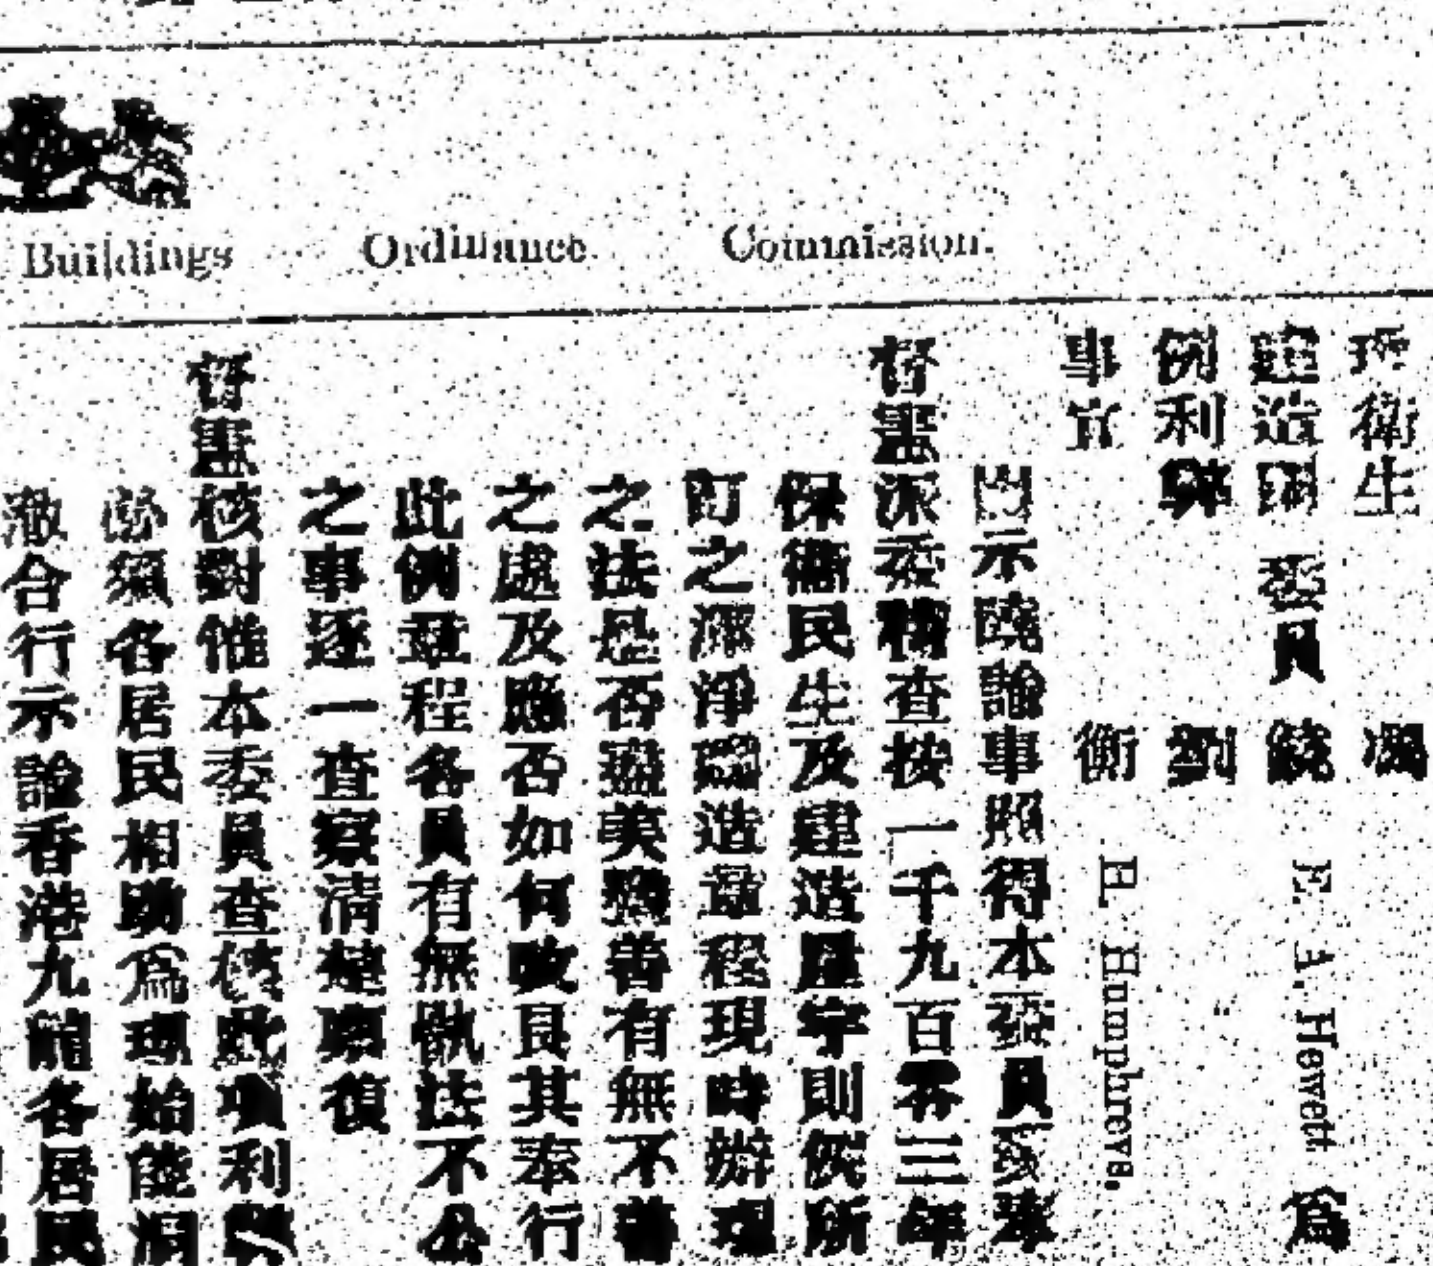 Buildings Ordinance Commission.
衛生 馮
建造則 委員 饒 E. A. Hewett 爲
例利弊 劉
事宜 衡 H. Humphreys.
出示曉諭事照得本委員 奉
督憲派委稽查按一千九百零三年
保衛民生及建造屋宇則例所
訂之潔淨建造章程現時辦理
之法是否盡美盡善有無不善
之處及應否如何改良其奉行
此例章程各員有無執法不公
之事逐一查察清楚稟復
督憲核對惟本委員查核此項利弊
必須各居民相助爲理始能洞
澈合行示諭香港九龍各居民